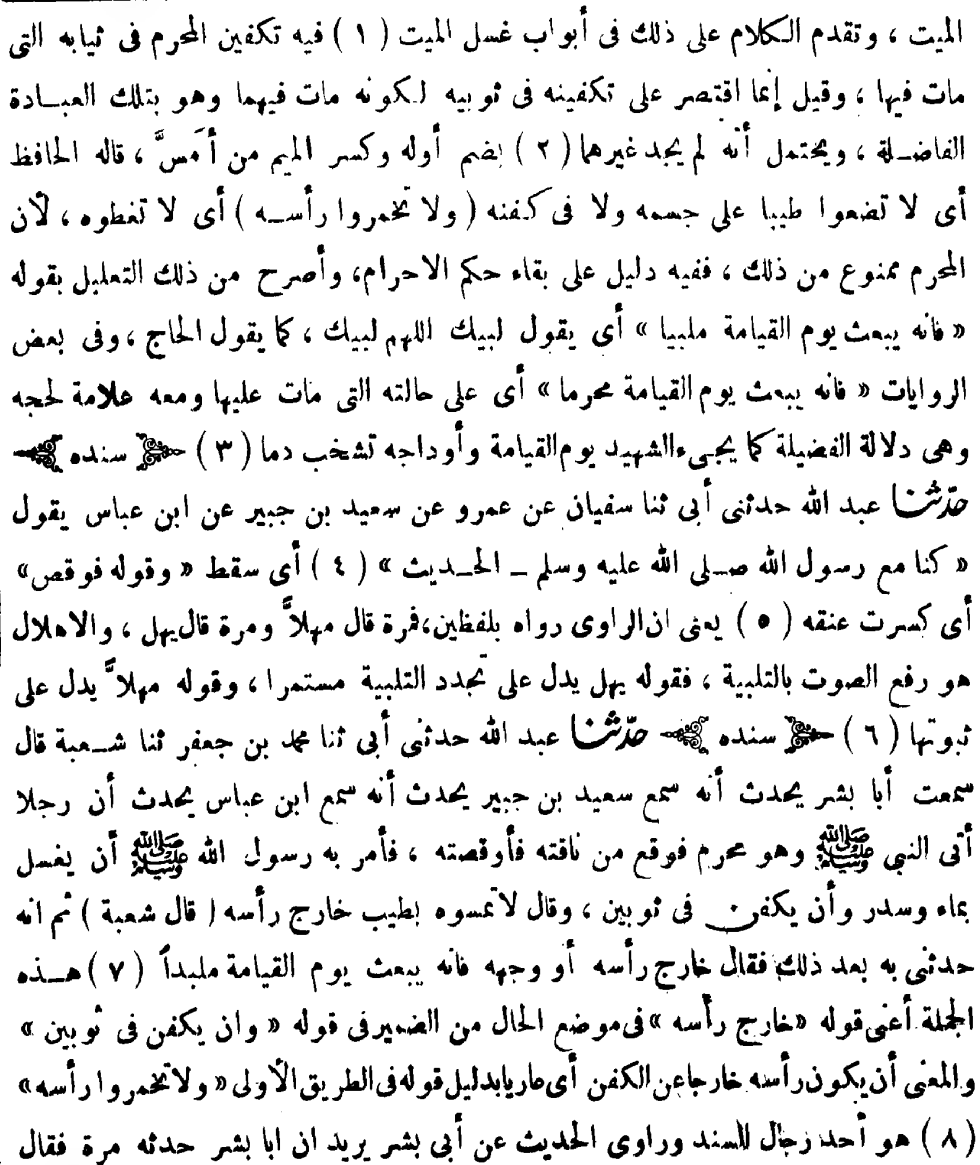 الميت ، وتقدم الكلام على ذلك فى أبواب غسل الميت ( ١ ) فيه تكفين المحرم فى ثيابه التى
مات فيها ، وقيل إنما اقتصر على تكفينه فى ثوبيه لكونه مات فيهما وهو بتلك العبادة
الفاضلة ، ويحتمل أنه لم يجد غيرهما ( ٢ ) بضم أوله وكسر الميم من أمَسَّ ، قاله الحافظ
أى لا تضعوا طيبا على جسمه ولا فى كفنه ( ولا تخمروا رأسه ) أى لا تغطوه ، لأن
المحرم ممنوع من ذلك ، ففيه دليل على بقاء حكم الاحرام، وأصرح من ذلك التعليل بقوله
« فانه يبعث يوم القيامة ملبيا » أى يقول لبيك اللهم لبيك ، كما يقول الحاج ، وفى بعض
الروايات « فانه يبعث يوم القيامة محرما » أى على حالته التى مات عليها ومعه علامة لحجه
وهى دلالة الفضيلة كما يجىء الشهيد يوم القيامة وأوداجه تشخب دما ( ٣ ) سنده
حدّثنا عبد الله حدثنى أبى ثنا سفيان عن عمرو عن سعيد بن جبير عن ابن عباس يقول
« كنا مع رسول الله صلى الله عليه وسلم ـ الحديث » ( ٤ ) أى سقط « وقوله فوقص»
أى كسرت عنقه ( ٥ ) يعنى ان الراوى رواه بلفظين، فمرة قال مهلاًّ ومرة قال يهل ، والاهلال
هو رفع الصوت بالتلبية ، فقوله يهل يدل على تجدد التلبية مستمرا ، وقوله مهلاًّ يدل على
ثبوتها ( ٦ ) سنده حدّثنا عبد الله حدثنى أبى ثنا محمد بن جعفر ثنا شعبة قال
سمعت أبا بشر يحدث أنه سمع سعيد بن جبير يحدث أنه سمع ابن عباس يحدث أن رجلا
أتى النبى ﷺ وهو محرم فوقع من ناقته فأوقصته ، فأمر به رسول الله ﷺ أن يغسل
بماء وسدر وأن يكفن فى ثوبين ، وقال لاتمسوه بطيب خارج رأسه ( قال شعبة ) ثم انه
حدثنى به بعد ذلك فقال خارج رأسه أو وجهه فانه يبعث يوم القيامة ملبداً ( ٧ ) هذه
الجملة أعنى قوله «خارج رأسه » فى موضع الحال من الضمير فى قوله « وان يكفن فى ثوبين »
والمعنى أن يكون رأسه خارجا عن الكفن أى عاريا بدليل قوله فى الطريق الأولى « ولاتخمروا رأسه»
( ٨ ) هو أحد رجال السند وراوى الحديث عن أبى بشر يريد ان ابا بشر حدثه مرة فقال